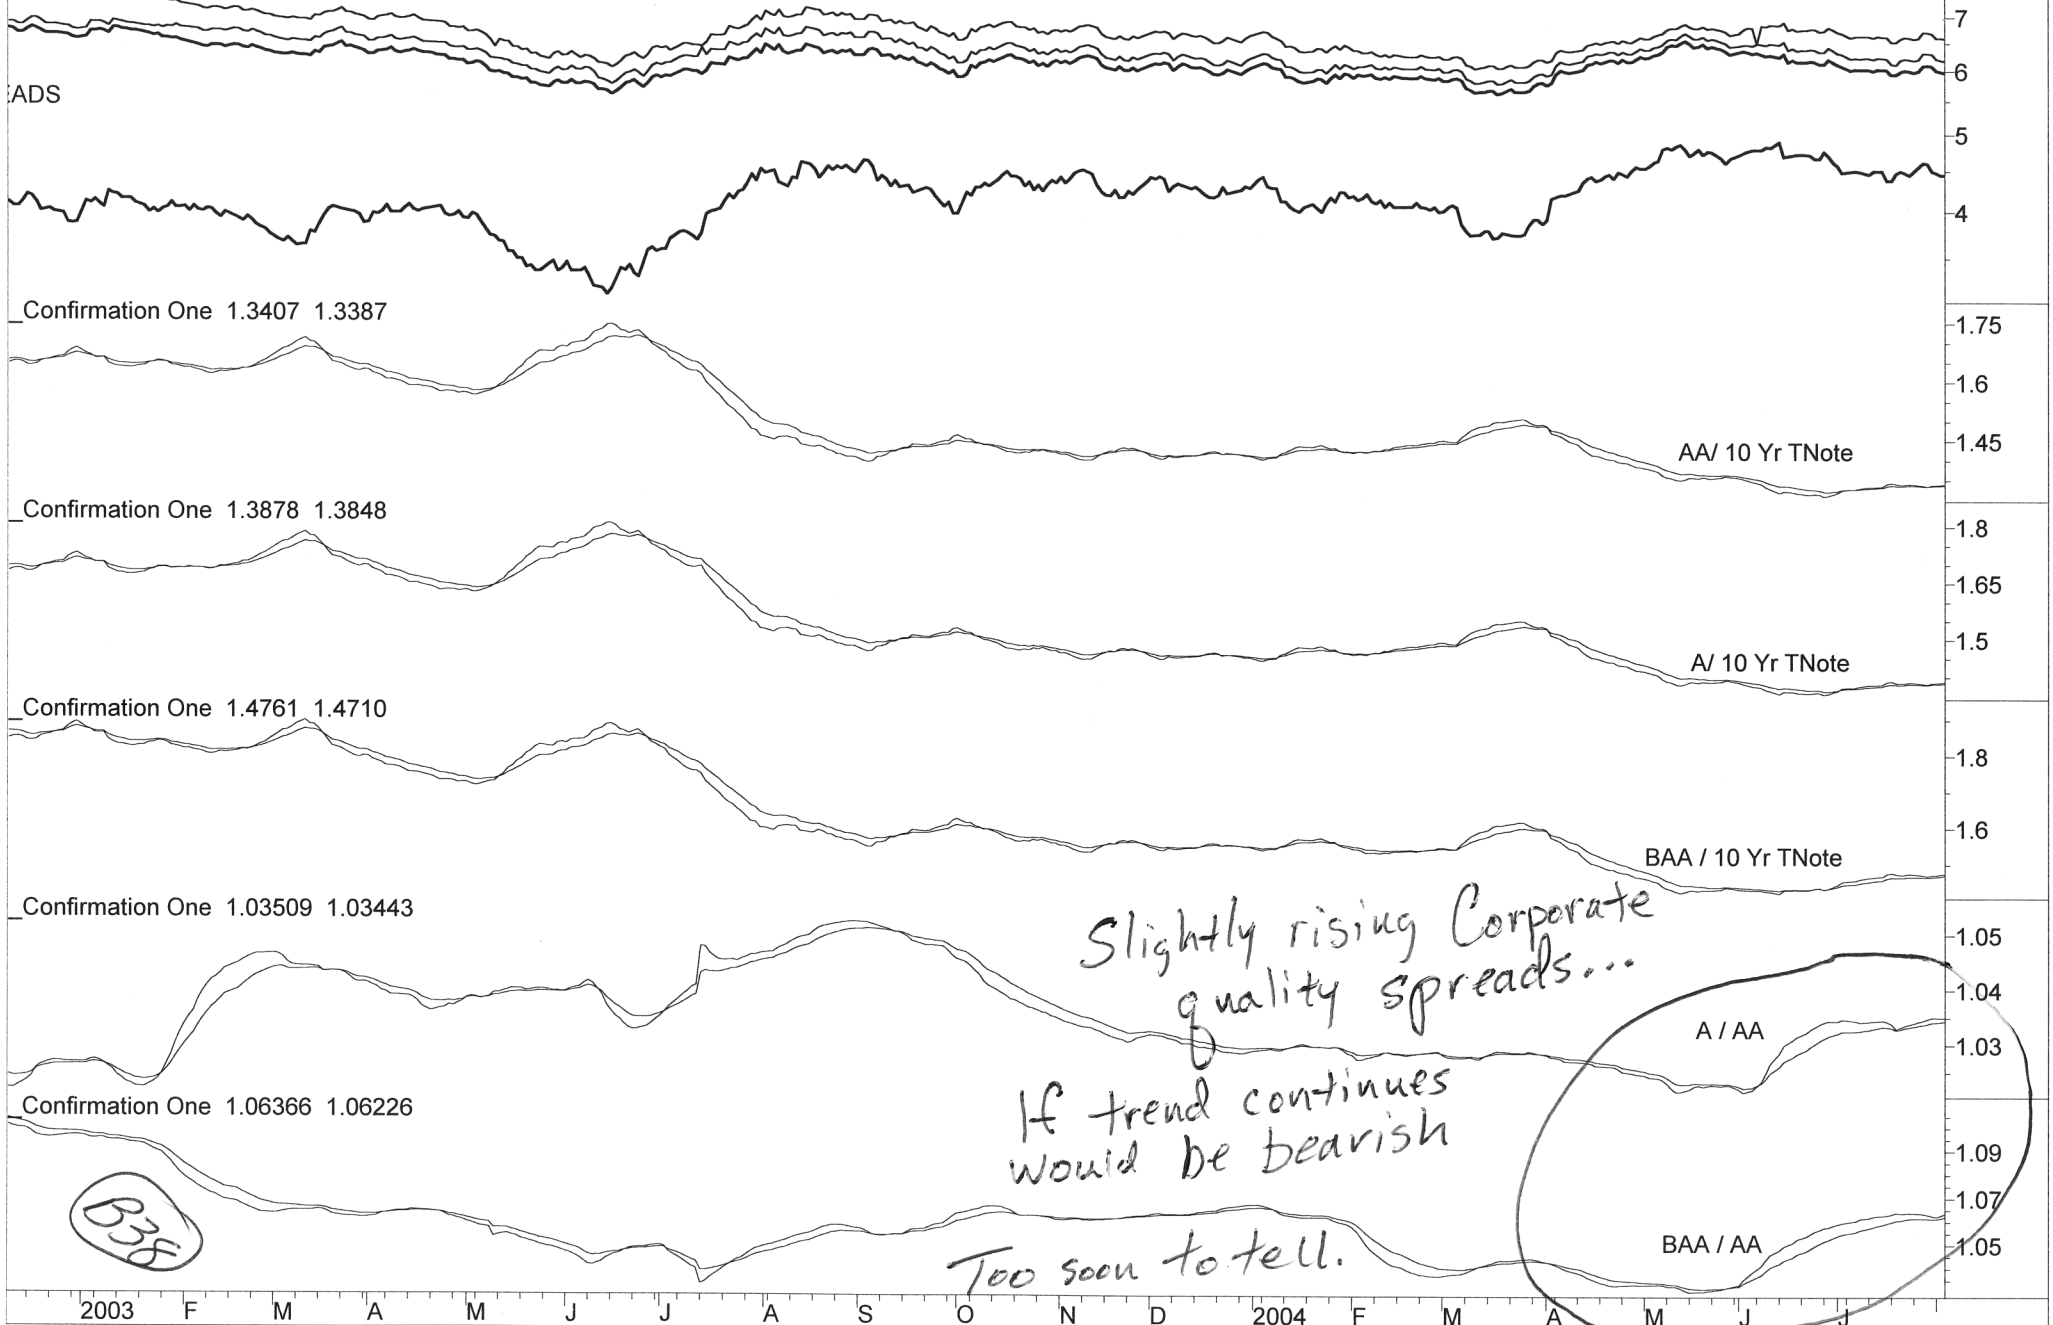 7
6
EADS
5
4
_Confirmation One 1.3407 1.3387
1.75
1.6
1.45
AA/ 10 Yr TNote
_Confirmation One 1.3878 1.3848
1.8
1.65
1.5
A/ 10 Yr TNote
_Confirmation One 1.4761 1.4710
1.8
1.6
BAA / 10 Yr TNote
_Confirmation One 1.03509 1.03443
Slightly rising Corporate
quality spreads...
1.05
1.04
A / AA
1.03
If trend continues
would be bearish
_Confirmation One 1.06366 1.06226
1.09
1.07
B38
Too soon to tell.
BAA / AA
1.05
2003 F M A M J J A S O N D 2004 F M A M J J